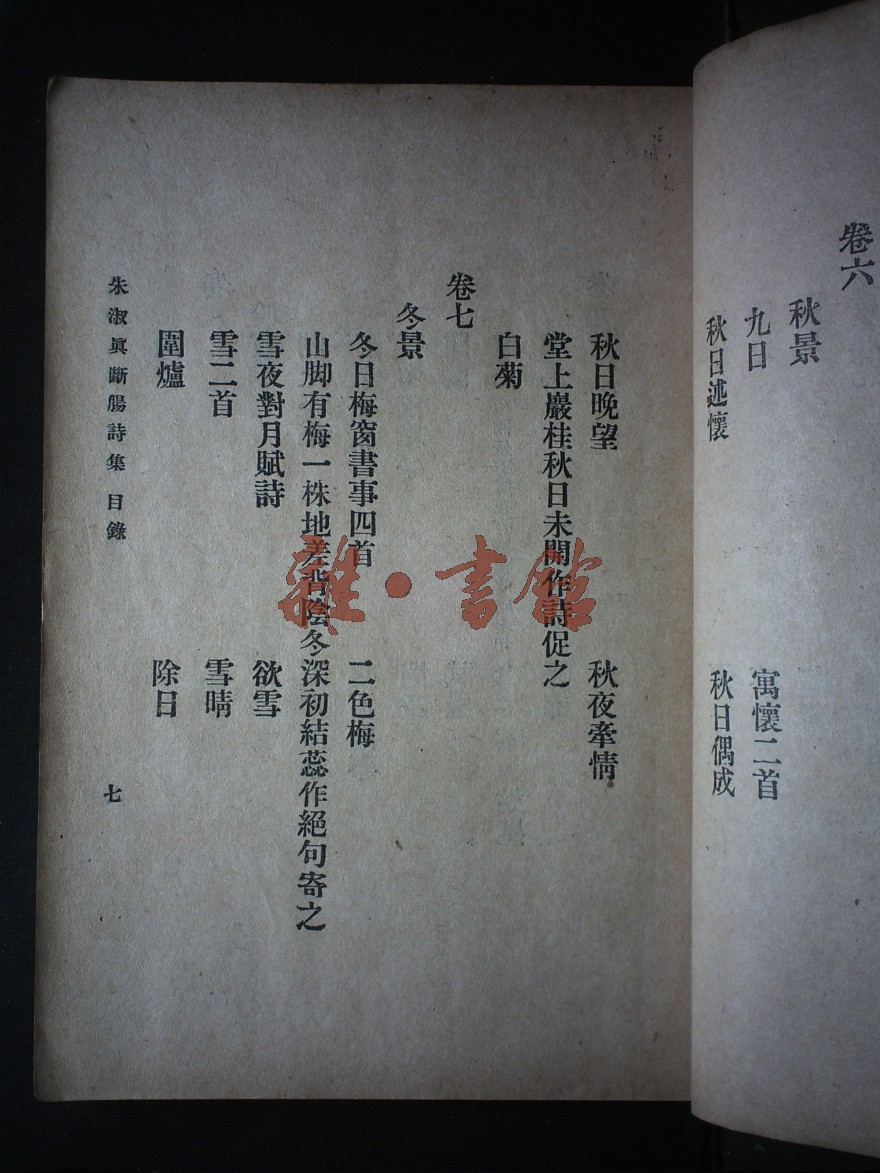 卷六
秋景
九日　寓懷二首
秋日述懷　秋日偶成
秋日晚望　秋夜牽情
堂上巖桂秋日未開作詩促之
白菊
卷七
冬景
冬日梅窗書事四首　二色梅
山脚有梅一株地差背陰冬深初結蕊作絕句寄之
雪夜對月賦詩　欲雪
雪二首　雪晴
圍爐　除日
朱淑眞斷腸詩集 目錄　七
雜·書館